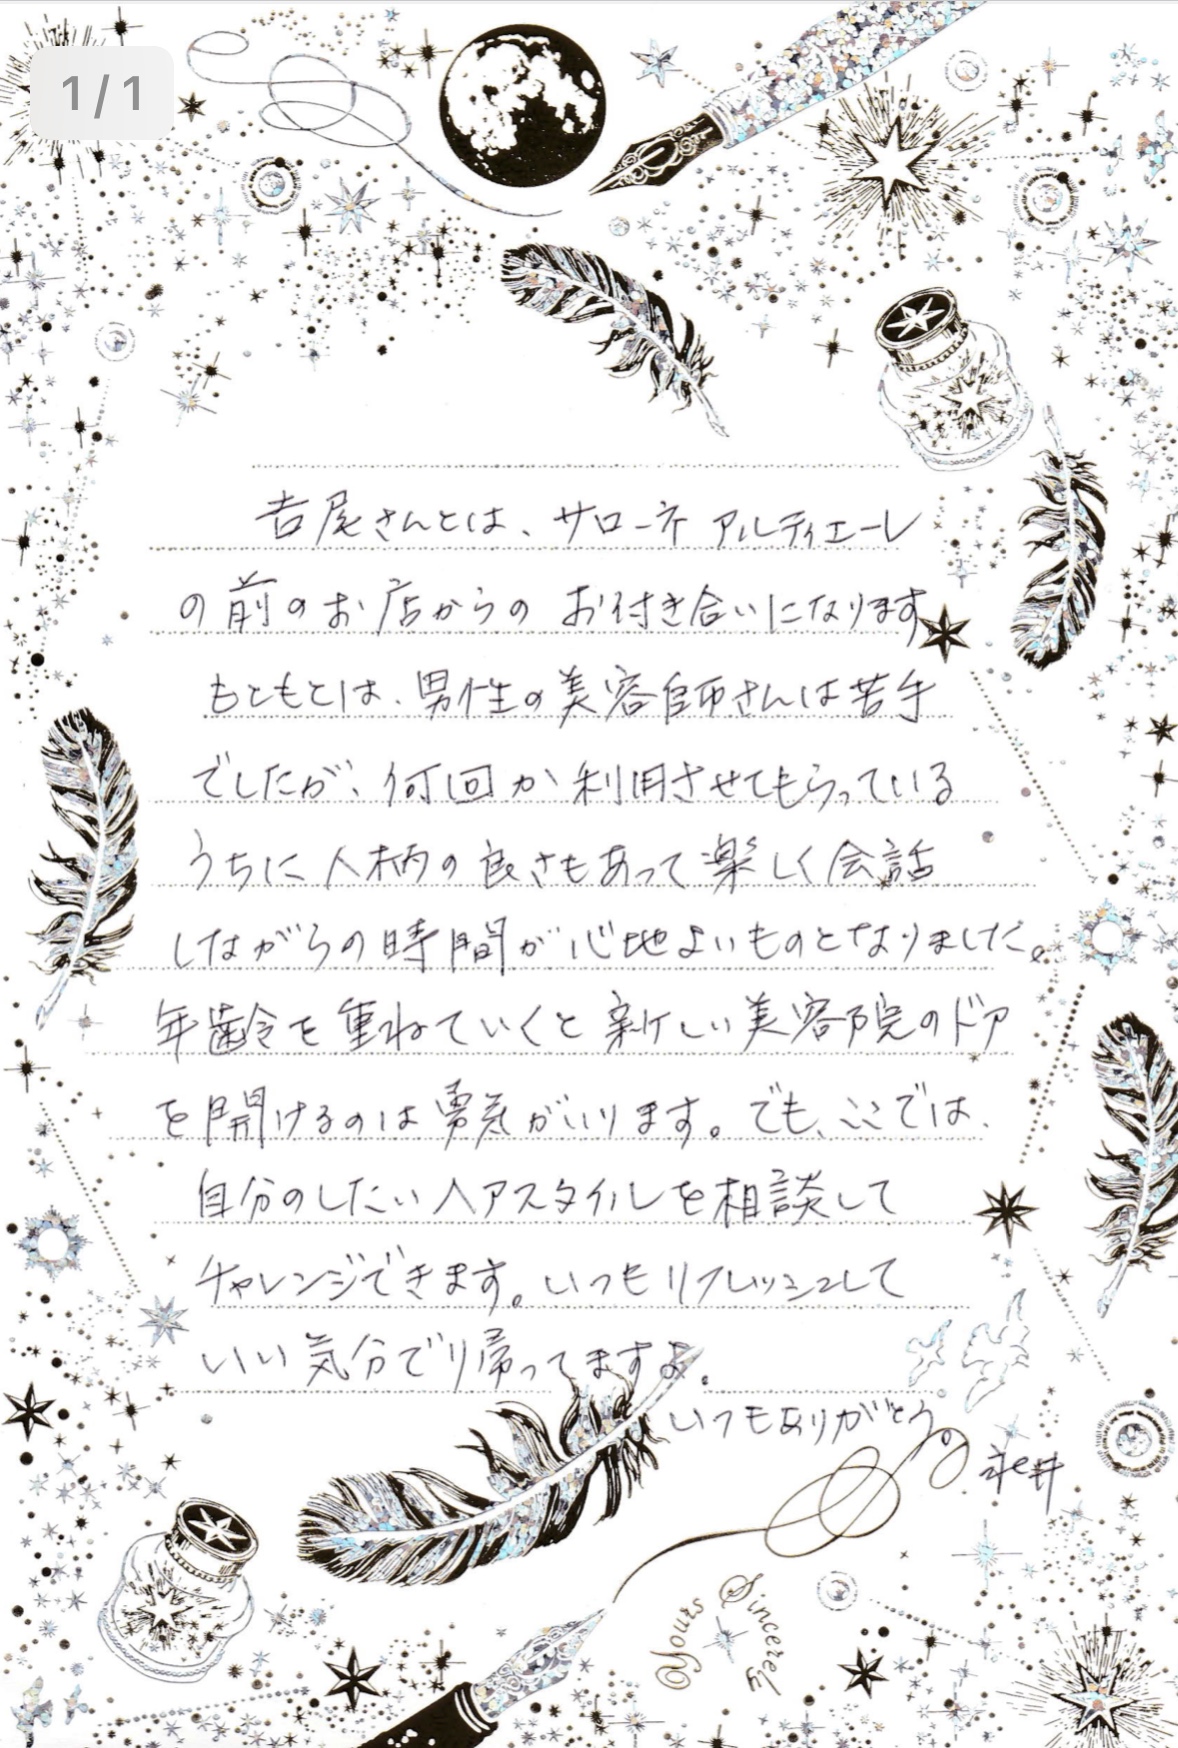 1/1
吉尾さんとは、サローネ アルティエーレ
の前のお店からの お付き合いになります。
もともとは、男性の美容師さんは苦手
でしたが、何回か利用させてもらっている
うちに人柄の良さもあって楽しく会話
しながらの時間が心地よいものとなりました。
年齢を重ねていくと新しい美容院のドア
を開けるのは勇気がいります。でも、ここでは、
自分のしたいヘアスタイルを相談して
チャレンジできます。いつもリフレッシュして
いい気分でり帰ってますよ。
いつもありがとう。
永井
Yours Sincerely